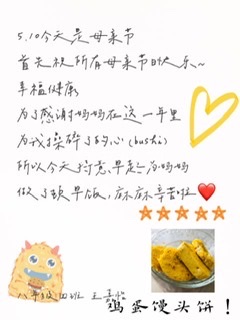 5.10今天是母亲节
首先祝所有母亲节日快乐~
幸福健康
为了感谢妈妈在这一年里
为我操碎了的心(bushi)
所以今天特意早起为妈妈
做了顿早饭，麻麻辛苦啦
八年级四班 王
鸡蛋馒头饼！